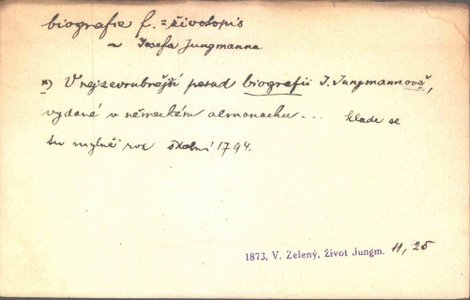 biografie f. = životopis
~ Josefa Jungmanna
V nejzevrubnější posud biografii J. Jungmannově,
vydané v německém almanachu... klade se
tu mylně rok školní 1794.
1873, V. Zelený, Život Jungm. 11, 25